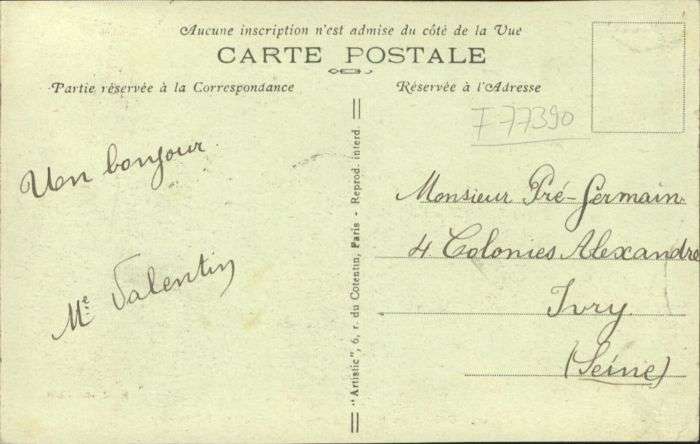 Aucune inscription n'est admise du côté de la Vue
CARTE POSTALE
Partie réservée à la Correspondance
Réservée à l'Adresse
F 77390
Un bonjour
Me Valentin
"Artistic", 6, r. du Cotentin, Paris - Reprod. interd.
Monsieur Pré-Germain
4 Colonies Alexandre
Ivry
(Seine)